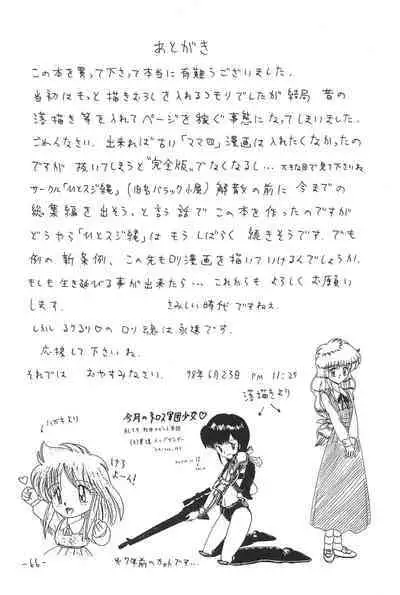 あとがき
この本を買って下さって本当に有難うございました.
当初はもっと描きむろしを入れるつもりでしたが結局 昔の
落描き等を入れてページを稼ぐ事態になってしまいました.
ごめんなさい. 出来れば古い「ママ四」漫画は入れたくなかったの
ですが 抜いてしまうと"完全版"でなくなるし… 大きな目で見て下さいね
サークル「ひとスジ縄」(旧名バラック小屋) 解散の前に 今までの
総集編を出そう、と言う話で この本を作ったのですが
どうやら「ひとスジ縄」は もう しばらく 続きそうです. でも
例の新条例、この先もロリ漫画を描いていけるんでしょうか.
もしも生き延びる事が出来たら… これからも よろしく お願い
します. さみしい時代ですねえ.
しかし るりるり♡の ロリ魂は永遠です.
応援して下さいね.
それでは おやすみなさい. '98年6月23日 PM 11:25
落描きより
ハガキより
今月のネロス軍団少女♡
けろ
よーん!
※7年前の
-66-